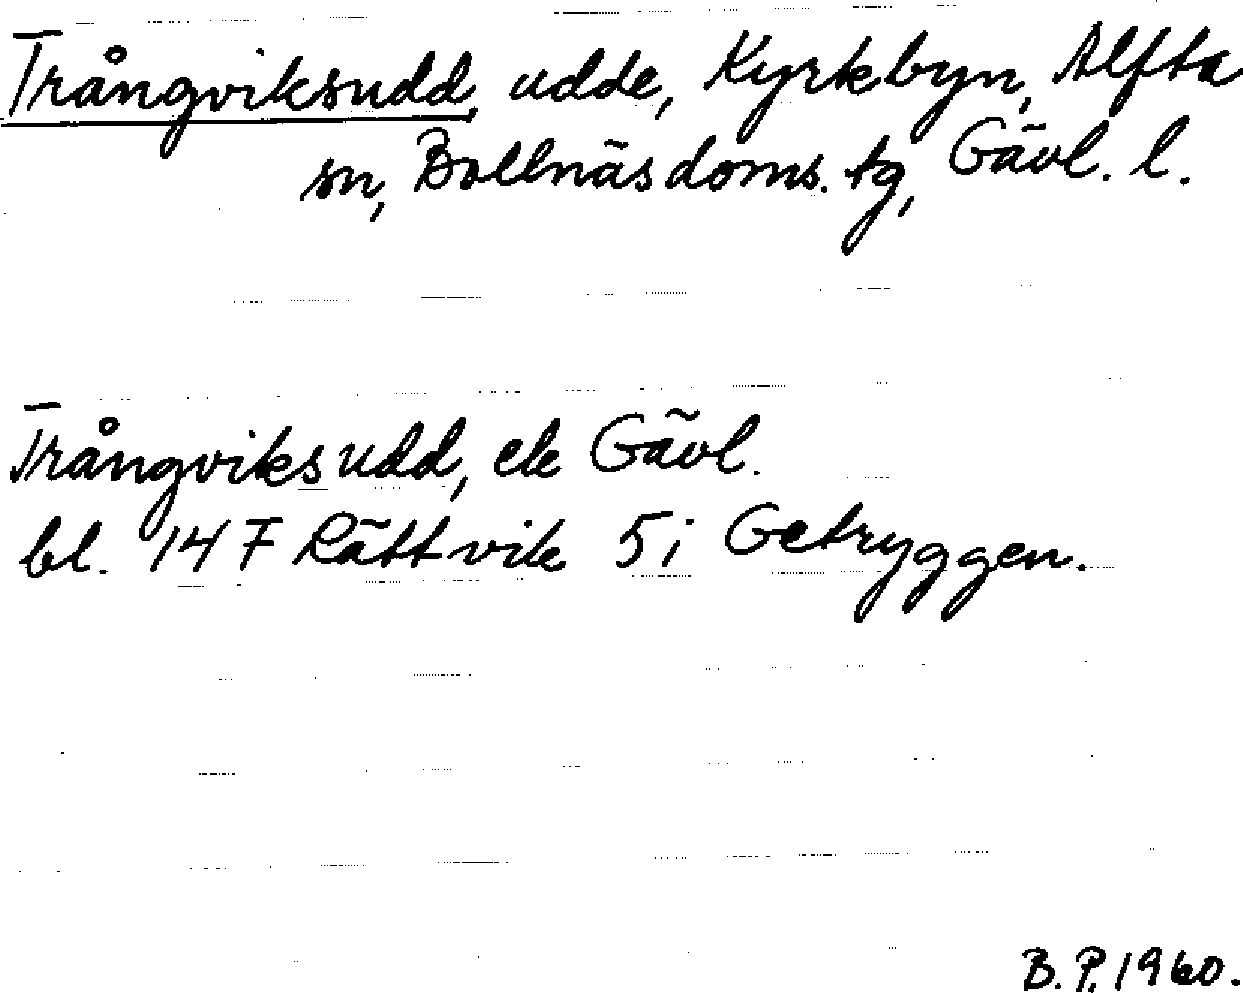 Trångviksudd, udde, Kyrkbyn, Alfta
sn, Bollnäs doms. tg, Gävl. l.
Trångviksudd, ek Gävl.
bl. 14 F Rättvik 5 i Getryggen.
B. P. 1960.